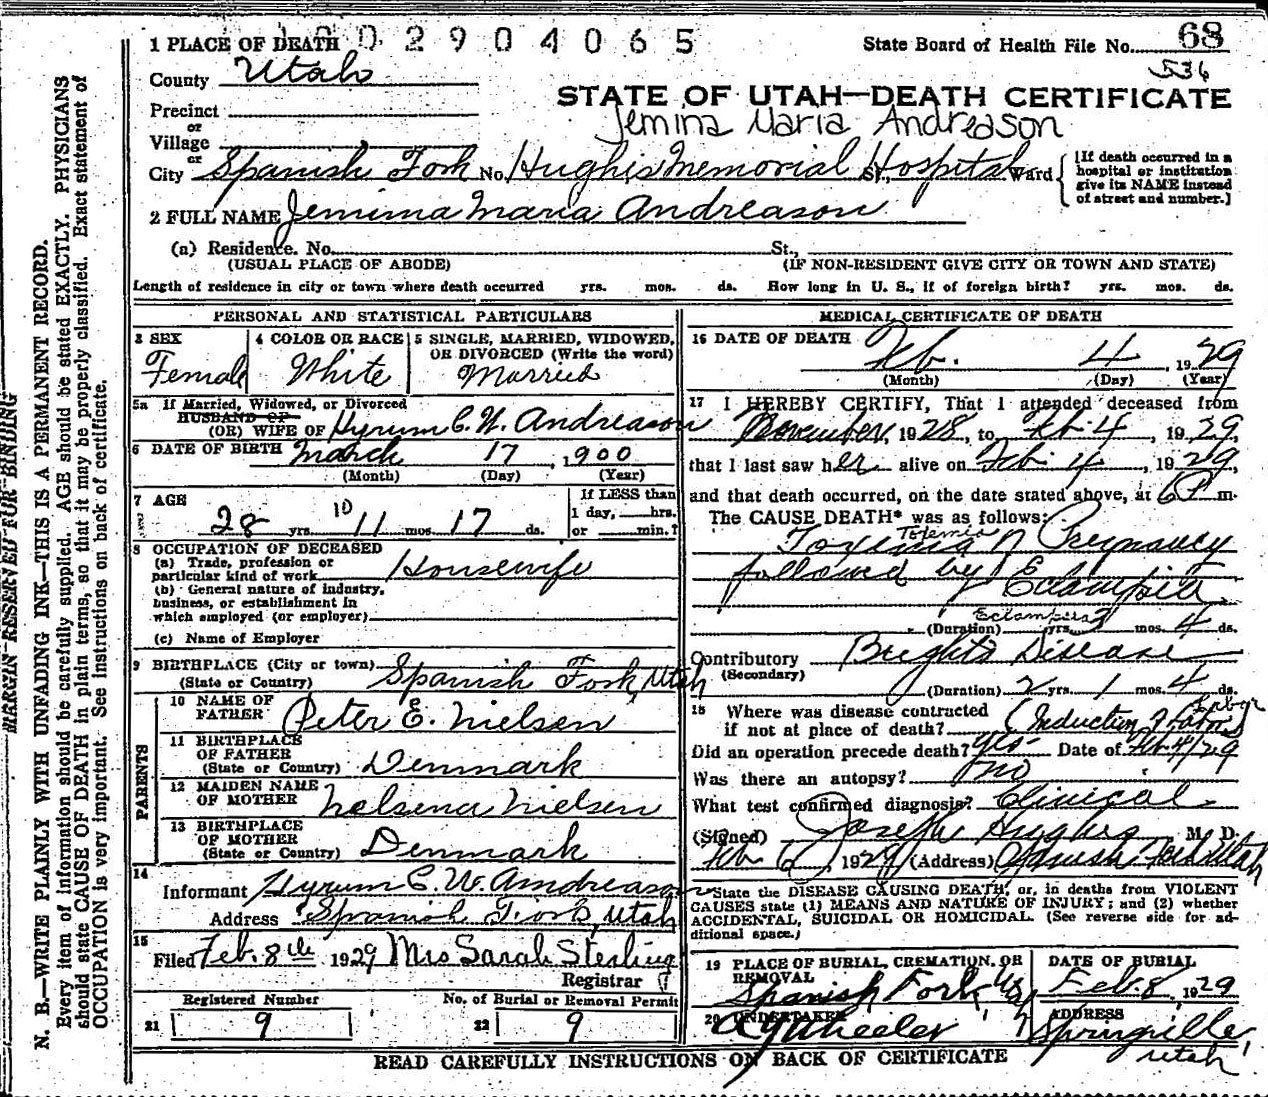 2904065
1 PLACE OF DEATH
State Board of Health File No. 68
536
County Utah
STATE OF UTAH—DEATH CERTIFICATE
Precinct
Jemina Maria Andreason
or
Village
or
City Spanish Fork No. Hughes Memorial St., Hospital Ward
[If death occurred in a hospital or institution give its NAME instead of street and number.]
2 FULL NAME Jemima Maria Andreason
(a) Residence. No. St.,
(USUAL PLACE OF ABODE) (IF NON-RESIDENT GIVE CITY OR TOWN AND STATE)
Length of residence in city or town where death occurred yrs. mos. ds. How long in U. S., if of foreign birth? yrs. mos. ds.
PERSONAL AND STATISTICAL PARTICULARS
3 SEX
Female
4 COLOR OR RACE
White
5 SINGLE, MARRIED, WIDOWED,
OR DIVORCED (Write the word)
Married
5a If Married, Widowed, or Divorced
HUSBAND OF
(OR) WIFE OF Hyrum C. W. Andreason
6 DATE OF BIRTH March 17, 1900
(Month) (Day) (Year)
7 AGE
28 yrs. 10 11 mos. 17 ds.
If LESS than
1 day, hrs.
or min.?
8 OCCUPATION OF DECEASED
(a) Trade, profession or
particular kind of work Housewife
(b) General nature of industry,
business, or establishment in
which employed (or employer)
(c) Name of Employer
9 BIRTHPLACE (City or town)
(State or Country) Spanish Fork, Utah
PARENTS
10 NAME OF
FATHER Peter E. Nielsen
11 BIRTHPLACE
OF FATHER
(State or Country) Denmark
12 MAIDEN NAME
OF MOTHER Nelsena Nielsen
13 BIRTHPLACE
OF MOTHER
(State or Country) Denmark
14
Informant Hyrum C. W. Andreason
Address Spanish Fork, Utah
15
Filed Feb. 8th 1929 Mrs Sarah Sterling
Registrar
Registered Number
21 9
No. of Burial or Removal Permit
22 9
MEDICAL CERTIFICATE OF DEATH
16 DATE OF DEATH Feb. 4, 1929
(Month) (Day) (Year)
17 I HEREBY CERTIFY, That I attended deceased from
November, 1928, to Feb. 4, 1929,
that I last saw her alive on Feb. 4, 1929,
and that death occurred, on the date stated above, at 6 P m.
The CAUSE DEATH* was as follows:
Toxemia
Toxemia of Pregnancy
followed by Eclampsia
Eclampsia
(Duration) yrs. 3 mos. 4 ds.
Contributory Brights Disease
(Secondary)
(Duration) 2 yrs. 1 mos. 4 ds.
18 Where was disease contracted
if not at place of death? (Induction of Labor)
Labor
Did an operation precede death? Yes Date of Feb. 4/29
Was there an autopsy? No
What test confirmed diagnosis? Clinical
(Signed) Joseph Hughes M. D.
Feb 6, 1929 (Address) Spanish Fork Utah
*State the DISEASE CAUSING DEATH, or, in deaths from VIOLENT
CAUSES state (1) MEANS AND NATURE OF INJURY; and (2) whether
ACCIDENTAL, SUICIDAL OR HOMICIDAL. (See reverse side for additional space.)
19 PLACE OF BURIAL, CREMATION, OR
REMOVAL
Spanish Fork,
DATE OF BURIAL
Feb. 8, 1929
20 UNDERTAKER
A Y Wheeler
ADDRESS
Springville,
Utah
READ CAREFULLY INSTRUCTIONS ON BACK OF CERTIFICATE
MARGIN RESERVED FOR BINDING
N. B.—WRITE PLAINLY WITH UNFADING INK—THIS IS A PERMANENT RECORD.
Every item of information should be carefully supplied. AGE should be stated EXACTLY. PHYSICIANS
should state CAUSE OF DEATH in plain terms, so that it may be properly classified. Exact statement of
OCCUPATION is very important. See instructions on back of certificate.